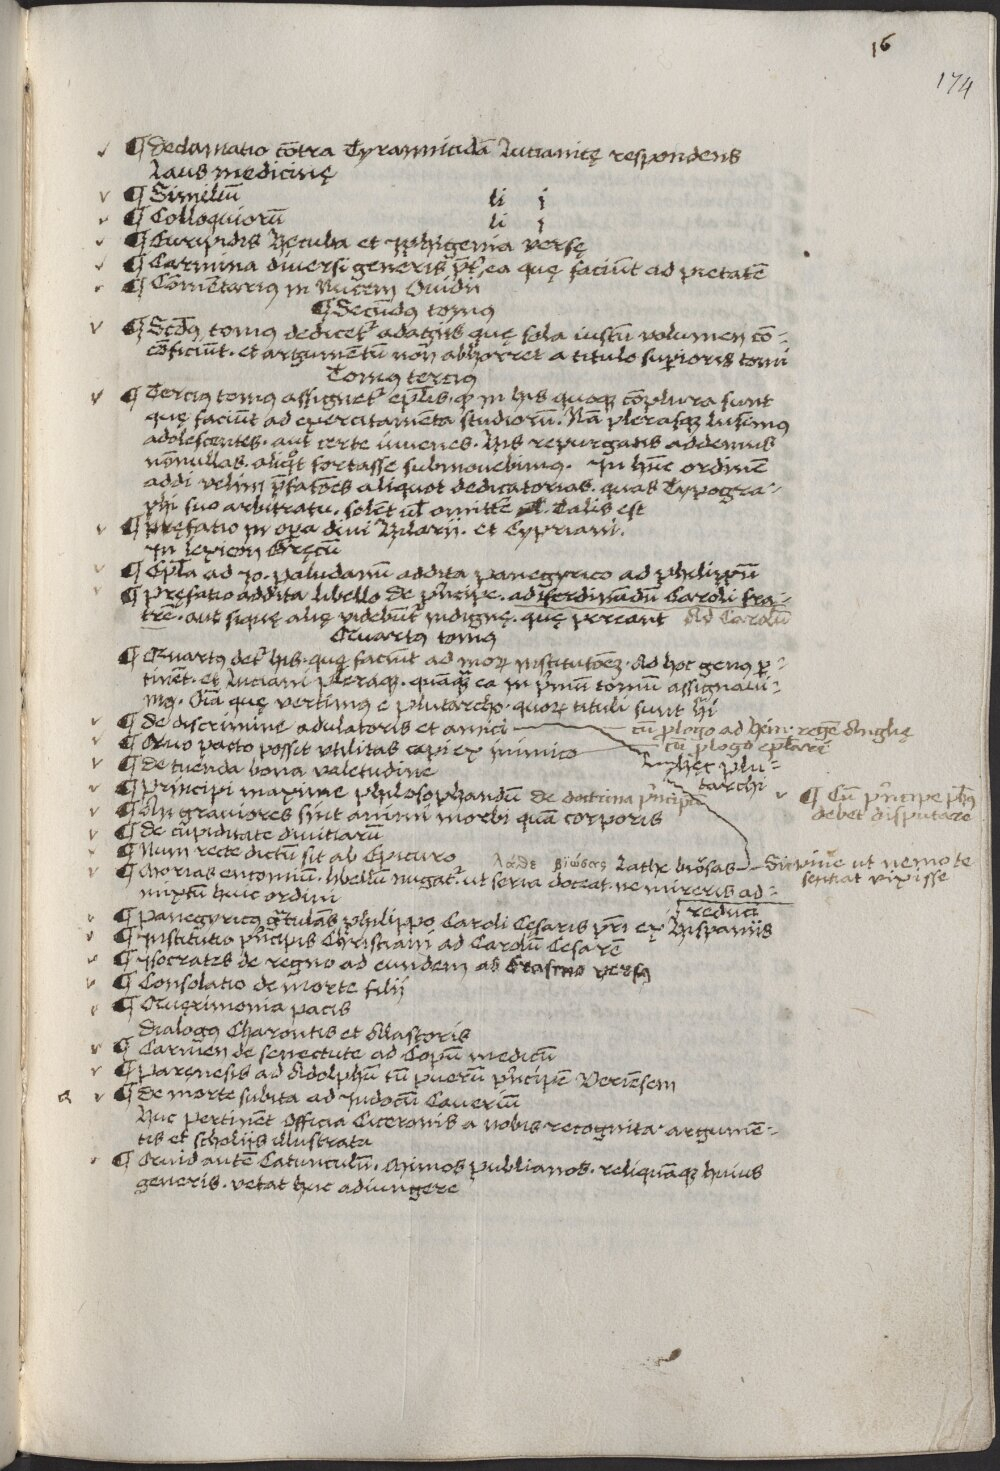 16
174
¶ Declamatio cōtra Tyrannicidā Lucianicę respondens
Laus medicinę
¶ Similiū li j
¶ Colloquiorū li j
¶ Euripidis Hecuba et Iphigenia versę
¶ Carmina diversi generis p̄t ea quę faciūt ad pietatē
¶ Cōmentariꝰ in Nucem Ovidii
¶ Secūdꝰ tomꝰ
¶ Scdꝰ tomꝰ dedicet᷑ adagiis quę sola iustū volumen cō-
cōficiūt. et argumētū non abhorret a titulo superioris tomi
Tomꝰ terciꝰ
¶ Terciꝰ tomꝰ assignet᷑ epl̄is, q̄ in his quoqꝫ cōplura sunt
quę faciūt ad exercitamēta studiorū. Nā plerasqꝫ lusimꝰ
adolescentes. aut certe iuvenes. His repurgatis addemus
nōnullas. aliqͦt fortasse submovebimꝰ. In hūc ordinē
addi velim p̄fatōes aliquot dedicatorias. quas Typogra-
phi suo arbitratu. solēt vl̄ omittē Talis est
¶ Pręfatio in oꝑa divi Hilarii. et Cypriani.
In lexicon Gręcū
¶ Epl̄a ad Jo. Paludanū addita panegyrico ad Philippū
¶ Pręfatio addita libello de p̄ncipe. ad Ferdinādū Caroli fra-
trē. aut siquę alię videbunt᷑ indignę. quę pereant Ad Carolū
Quartꝰ tomꝰ
¶ Quartꝰ det᷑ his. quę faciūt ad moꝝ institutōeꝫ. Ad hoc genꝰ ꝑ-
tinēt. et Luciani pleraqꝫ. quāqꝫ ea in p̄mū tomū assignavi-
mꝰ. Oīa quę vertimꝰ e Plutarcho. quoꝝ tituli sunt hi
¶ De discrimine adulatoris et amici cū plogo ad Hēn. regē Anglię
¶ Quo pacto possit utilitas capi ex inimico cū plogo eplari
¶ De tuenda bona valetudine hęc Plu-
tarchi
¶ Principi maxime philosophandū De doctrina p̄ncipū ¶ Cū p̄ncipe ph̄us
debet disputare
¶ An graviores sint animi morbi quā corporis
¶ De cupiditate divitiarū
¶ Num recte dictū sit ab Epicuro λάθε βιώσας Lathe biōsas Sic vive ut nemo te
sentiat vixisse
¶ Morias encomiū. libellū nugat᷑. ut seria doceat. ne mireris ad-
mixtū huic ordini reduci
¶ Panegyricꝰ gr̄tulās Philippo Caroli Cęsaris pr̄i ex Hispaniis
¶ Institutio p̄ncipis Christiani ad Carolū Cesarē
¶ Isocrates de regno ad eundem ab Erasmo versꝰ
¶ Consolatio de morte filii
¶ Quęrimonia pacis
Dialogꝰ Charontis et Alastoris
¶ Carmen de senectute ad Copū medicū
¶ Parenesis ad Adolphū tū puerū p̄ncipē Veriēsem
¶ De morte subita ad Iudocū Caveriū
Huc pertinēt Officia Ciceronis a nobis recognita. argumē-
tis et scholiis illustrata
¶ Quid autē Catunculū. Mimos Publianos. reliquāqꝫ huius
generis. vetat huc adiungere